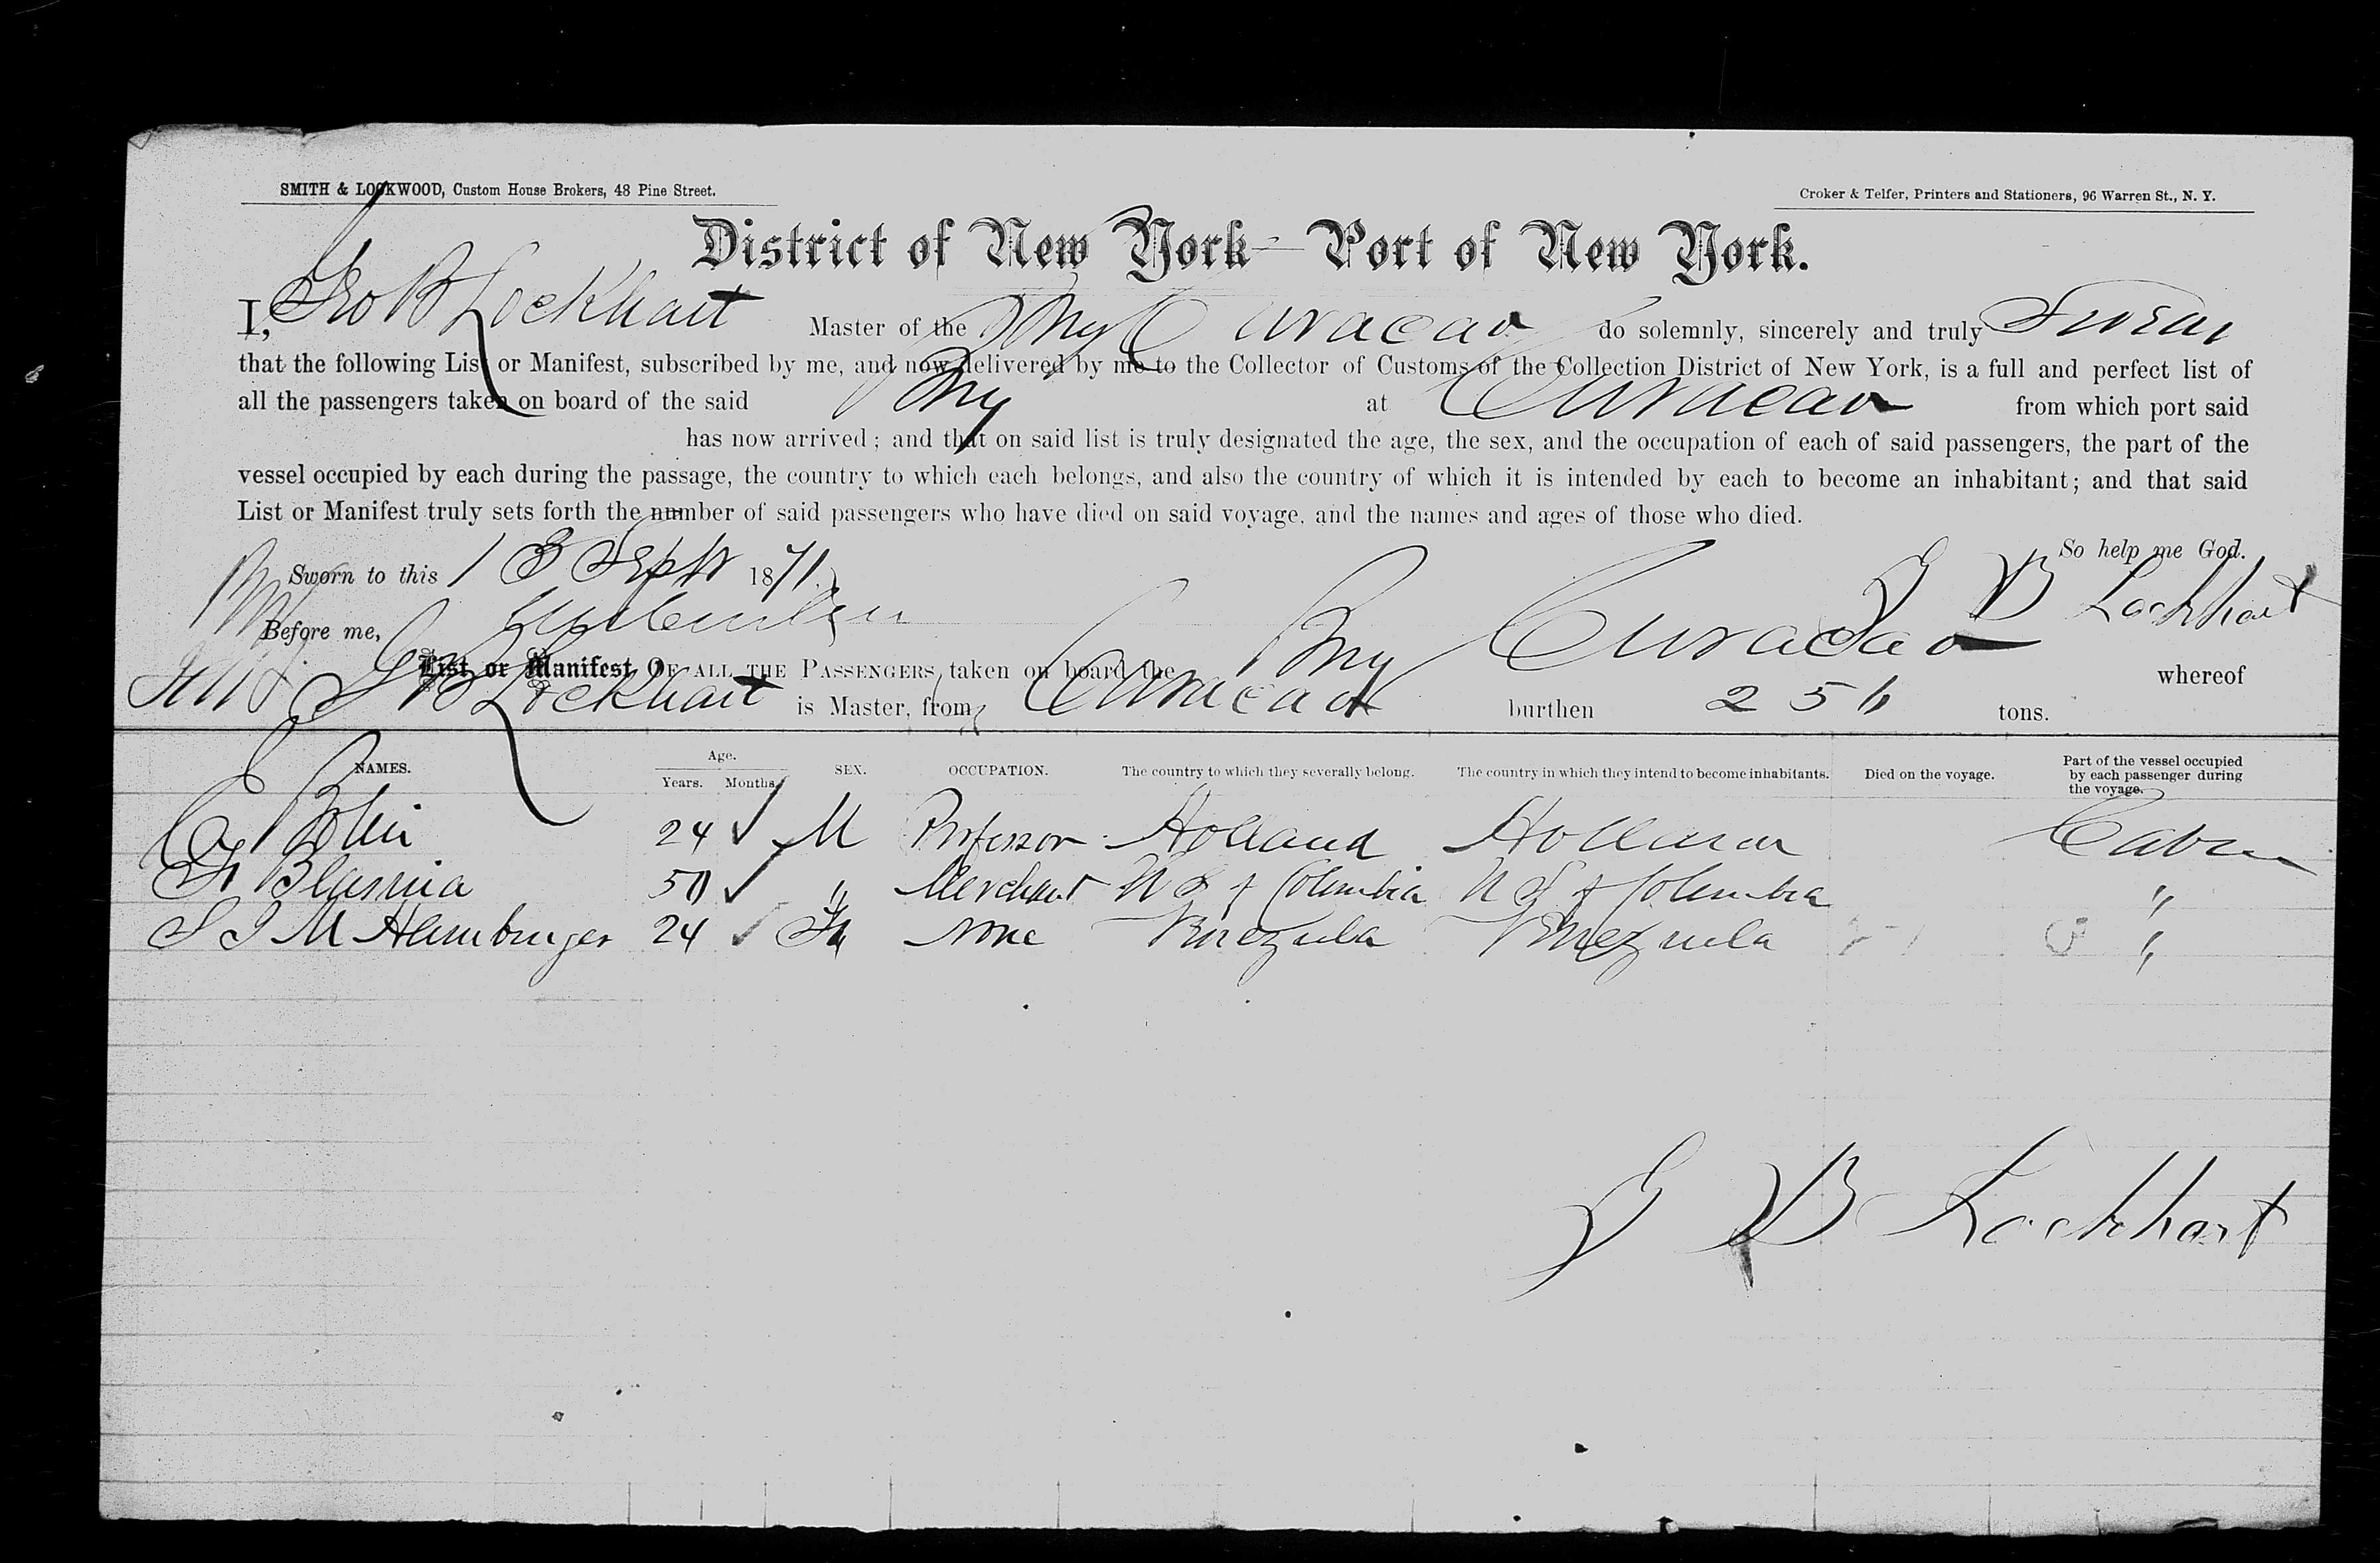 SMITH & LOCKWOOD, Custom House Brokers, 48 Pine Street.
Croker & Telfer, Printers and Stationers, 96 Warren St., N. Y.
District of New York—Port of New York.
I, Geo B Lockhart Master of the Brig Curacao do solemnly, sincerely and truly Swear
that the following List or Manifest, subscribed by me, and now delivered by me to the Collector of Customs of the Collection District of New York, is a full and perfect list of
all the passengers taken on board of the said Brig at Curacao from which port said
has now arrived; and that on said list is truly designated the age, the sex, and the occupation of each of said passengers, the part of the
vessel occupied by each during the passage, the country to which each belongs, and also the country of which it is intended by each to become an inhabitant; and that said
List or Manifest truly sets forth the number of said passengers who have died on said voyage, and the names and ages of those who died.
So help me God.
Sworn to this 13 Sept 1871.
G B Lockhart
Before me,
List or Manifest OF ALL THE PASSENGERS, taken on board the Brig Curacao whereof
G B Lockhart is Master, from Curacao burthen 256 tons.
NAMES. Age. Years. Months. SEX. OCCUPATION. The country to which they severally belong. The country in which they intend to become inhabitants. Died on the voyage. Part of the vessel occupied by each passenger during the voyage.
24 M Professor Holland Holland Cabin
50 " Merchant U S of Columbia U S of Columbia "
S I M Hamburger 24 Fm None Venezuela Venezuela "
G B Lockhart